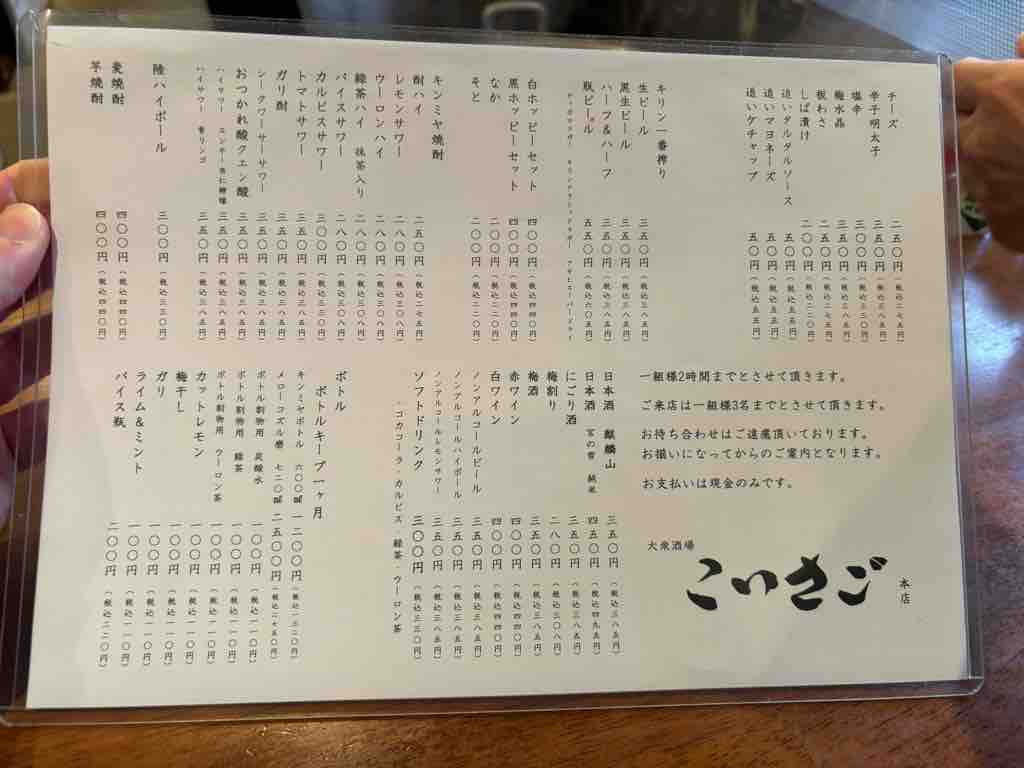 チーズ 二五〇円(税込二七五円)
辛子明太子 三五〇円(税込三八五円)
塩辛 三〇〇円(税込三三〇円)
梅水晶 三五〇円(税込三八五円)
板わさ 二五〇円(税込二七五円)
しば漬け 二〇〇円(税込二二〇円)
追いタルタルソース 五〇円(税込五五円)
追いマヨネーズ 五〇円(税込五五円)
追いケチャップ 五〇円(税込五五円)
キリン一番搾り
生ビール 三五〇円(税込三八五円)
黒生ビール 三五〇円(税込三八五円)
ハーフ&ハーフ 三五〇円(税込三八五円)
瓶ビール 五五〇円(税込六〇五円)
サッポロラガー キリンクラシックラガー アサヒスーパードライ
白ホッピーセット 四〇〇円(税込四四〇円)
黒ホッピーセット 四〇〇円(税込四四〇円)
なか 二〇〇円(税込二二〇円)
そと 二〇〇円(税込二二〇円)
キンミヤ焼酎
酎ハイ 二五〇円(税込二七五円)
レモンサワー 二八〇円(税込三〇八円)
ウーロンハイ 二八〇円(税込三〇八円)
緑茶ハイ 抹茶入り 二八〇円(税込三〇八円)
バイスサワー 二八〇円(税込三〇八円)
カルピスサワー 三〇〇円
トマトサワー 三五〇円(税込三八五円)
ガリ酎 三五〇円(税込三八五円)
シークワーサーサワー 三五〇円(税込三八五円)
おつかれ酸クエン酸 三五〇円(税込三八五円)
ハイサワー 杏仁檸檬 三五〇円(税込三八五円)
ハイサワー 青リンゴ 三五〇円(税込三八五円)
陸ハイボール 三〇〇円(税込三三〇円)
麦焼酎 四〇〇円(税込四四〇円)
芋焼酎 四〇〇円(税込四四〇円)
一組様2時間までとさせて頂きます。
ご来店は一組様3名までとさせて頂きます。
お待ち合わせはご遠慮頂いております。
お揃いになってからのご案内となります。
お支払いは現金のみです。
大衆酒場
こいさご
本店
日本酒 麒麟山 三五〇円(税込三八五円)
日本酒 宮の雪 純米 四五〇円(税込四九五円)
にごり酒 三五〇円(税込三八五円)
梅割り 二八〇円(税込三〇八円)
梅酒 三五〇円(税込三八五円)
赤ワイン 四〇〇円(税込四四〇円)
白ワイン 四〇〇円(税込四四〇円)
ノンアルコールビール 三五〇円(税込三八五円)
ノンアルコールハイボール 三五〇円(税込三八五円)
ノンアルコールレモンサワー 三五〇円(税込三八五円)
ソフトドリンク 三〇〇円(税込三三〇円)
・コカコーラ・カルピス・緑茶・ウーロン茶
ボトル
ボトルキープ一ヶ月
キンミヤボトル 六〇〇㎖ 一二〇〇円(税込一三二〇円)
メローコズル磨 七二〇㎖ 二五〇〇円(税込二七五〇円)
ボトル割物用 炭酸水 一〇〇円(税込一一〇円)
ボトル割物用 緑茶 一〇〇円(税込一一〇円)
ボトル割物用 ウーロン茶 一〇〇円(税込一一〇円)
カットレモン 一〇〇円(税込一一〇円)
梅干し 一〇〇円(税込一一〇円)
ガリ 一〇〇円(税込一一〇円)
ライム&ミント 一〇〇円(税込一一〇円)
バイス瓶 二〇〇円(税込二二〇円)